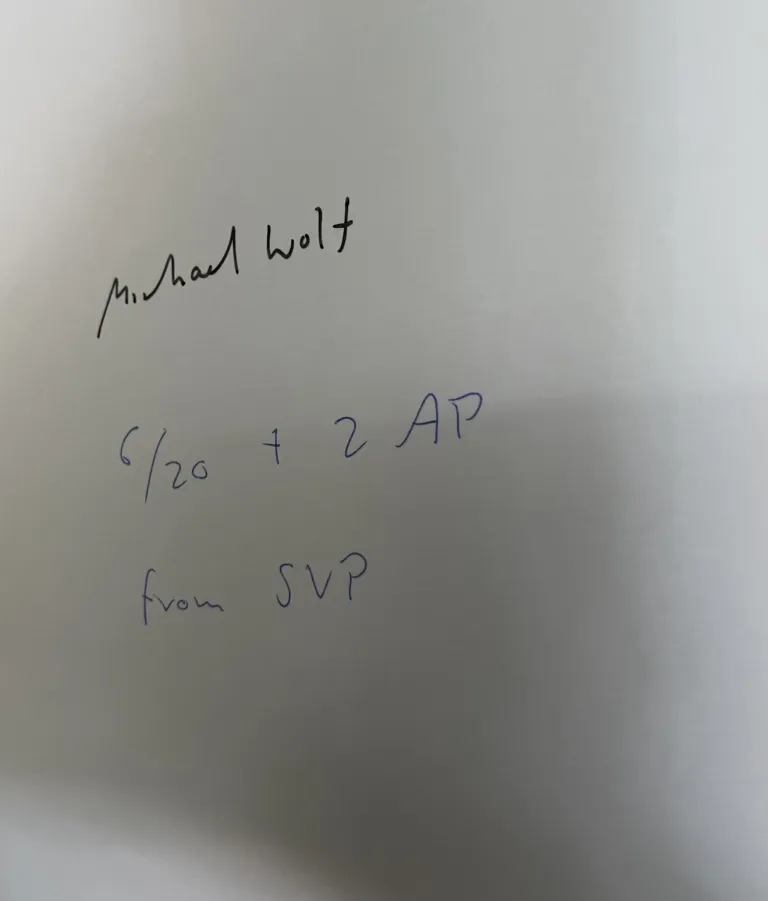 Michael Wolf
6/20 + 2 AP
from SVP